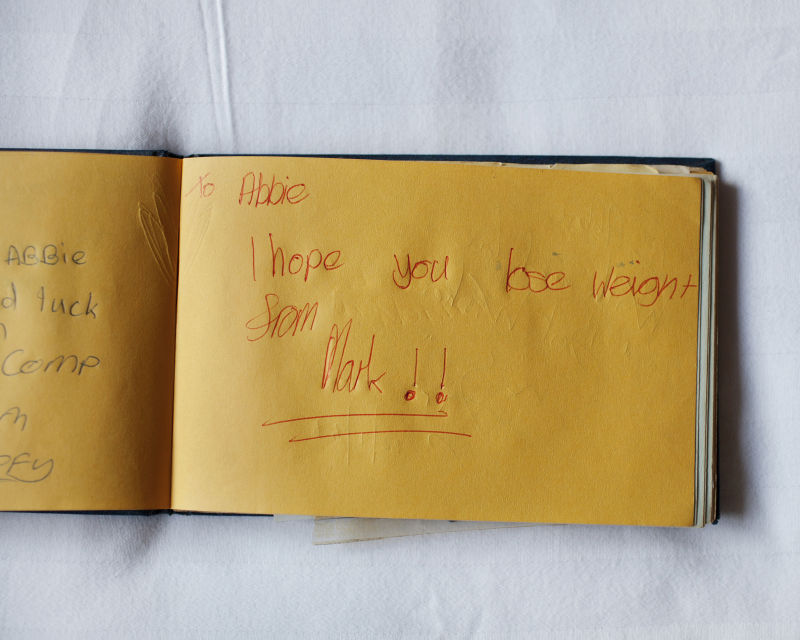 ABBie
d luck
Comp
To Abbie
I hope you lose weight
from
Mark !!